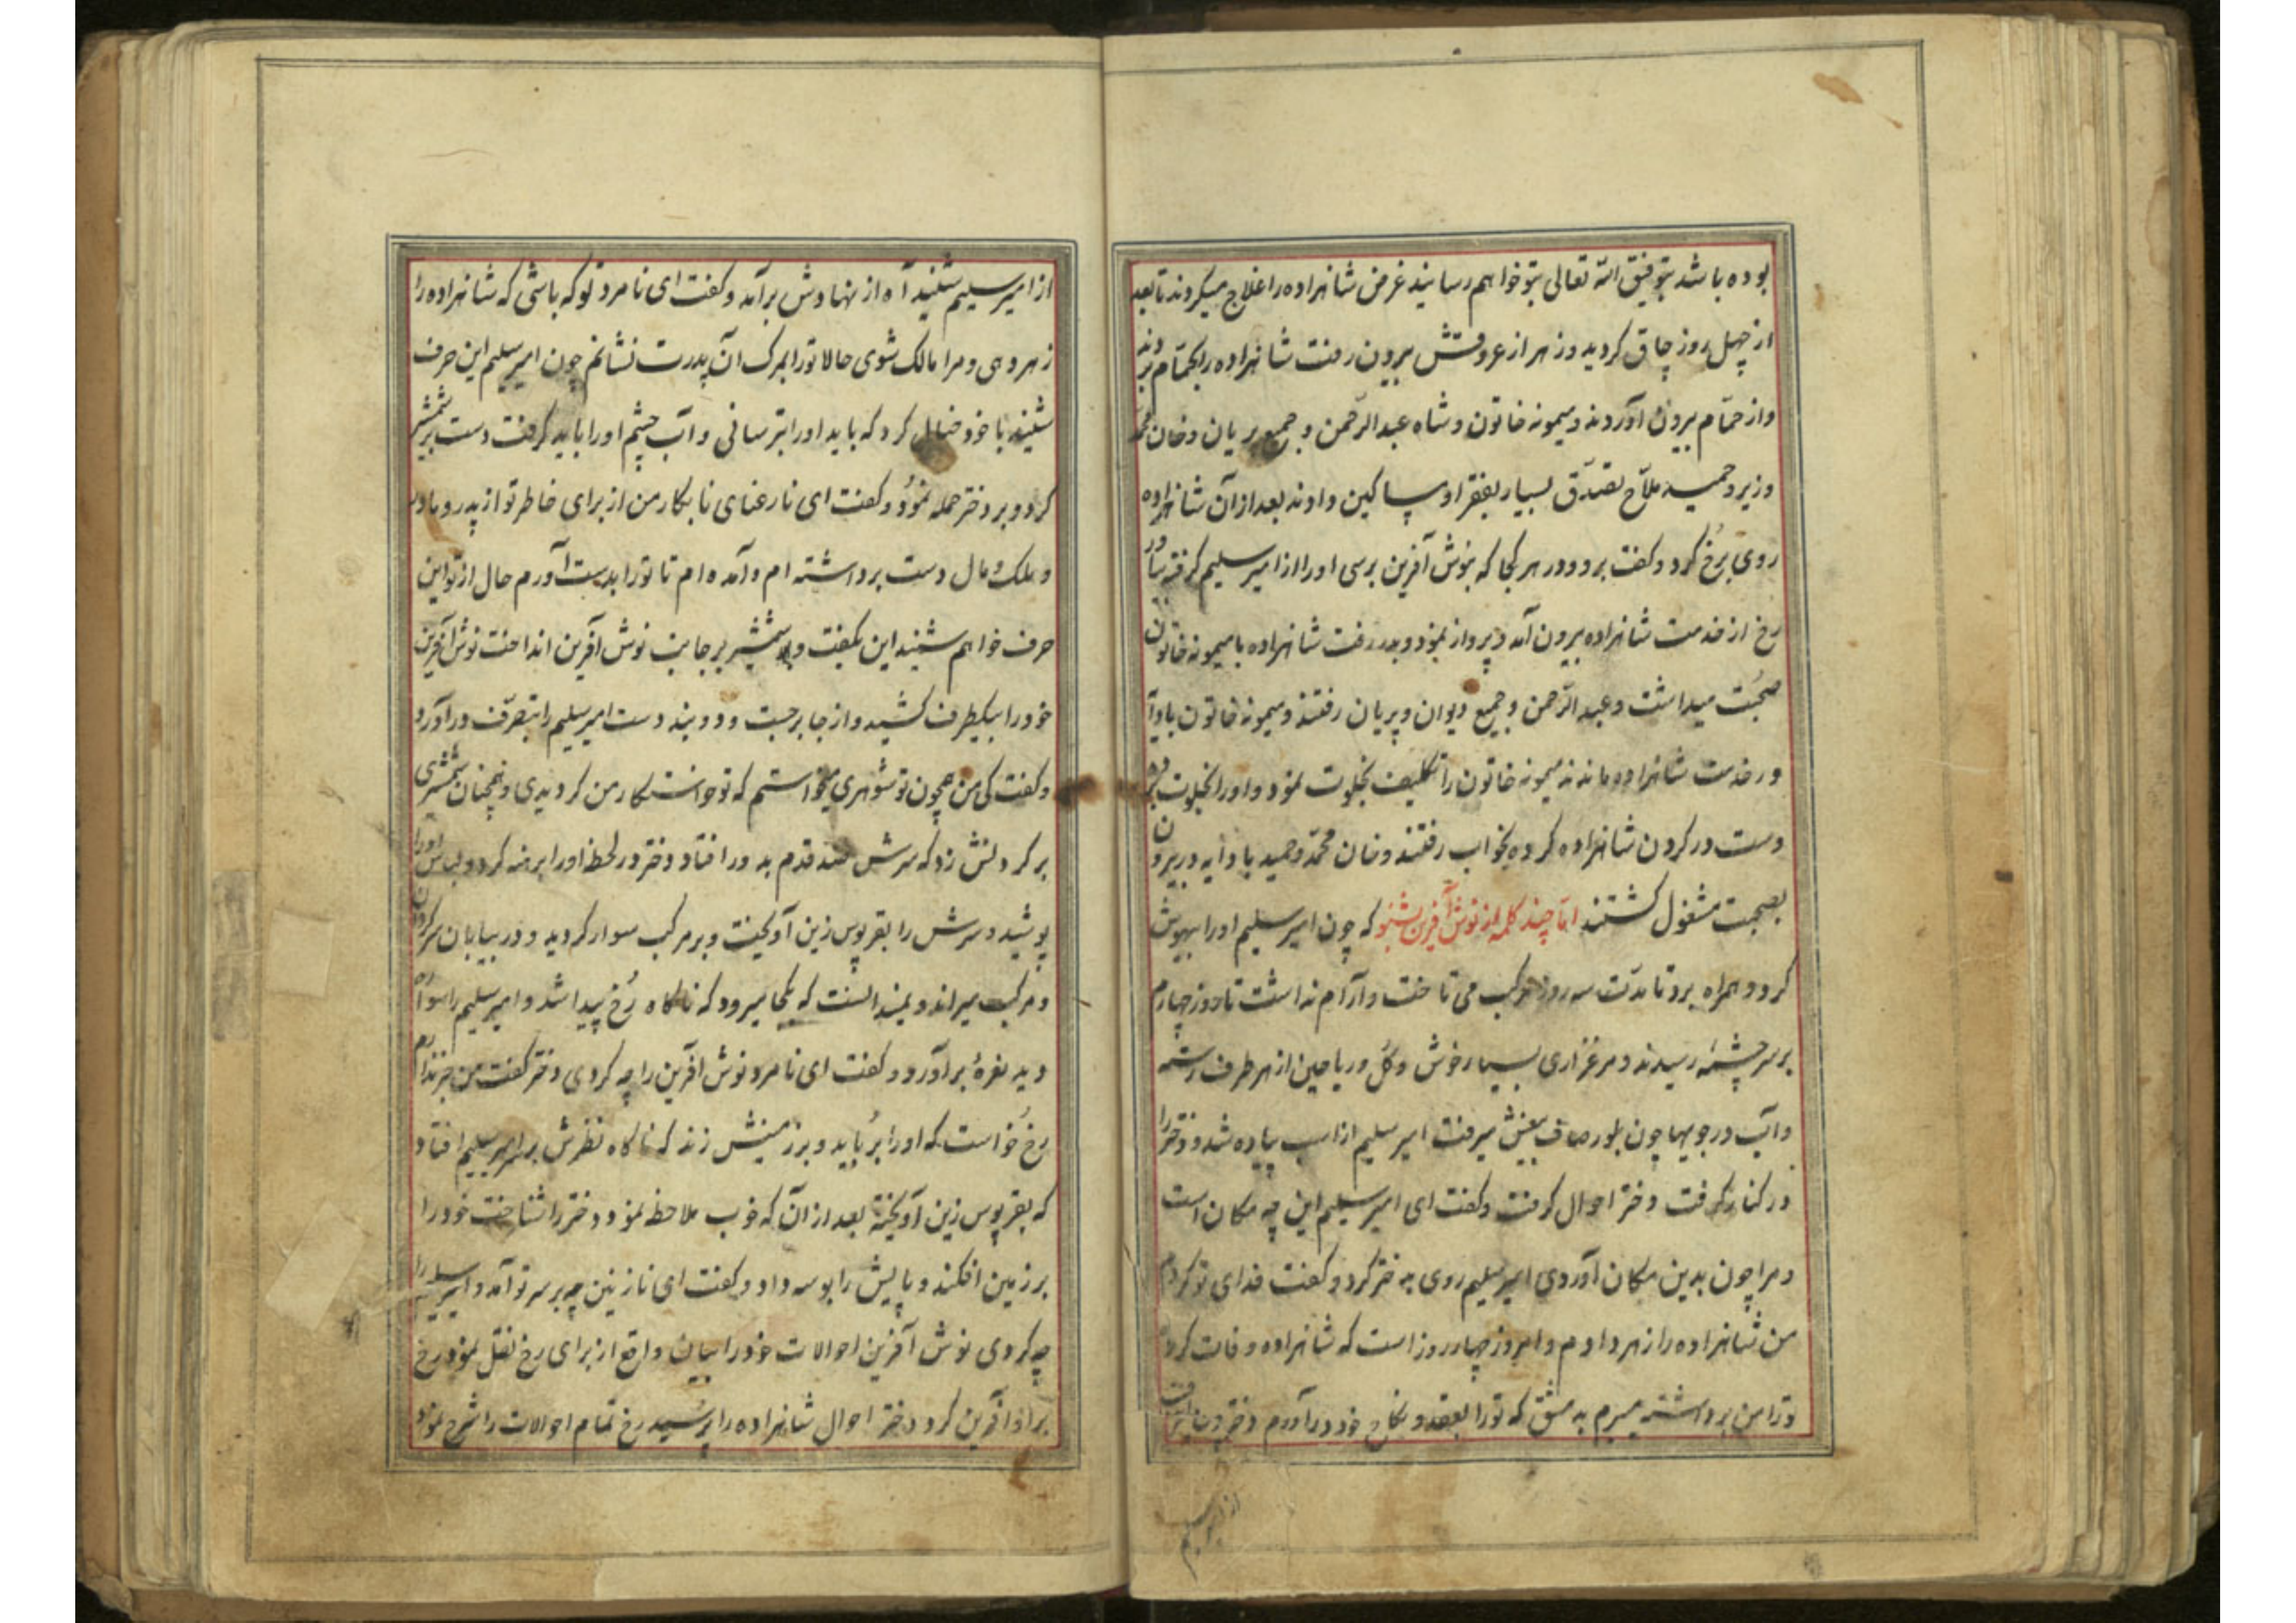 بوده باشد بتوفیق الله تعالی بتو خواهم رسانید غرض شاهزاده را علاج میکردند تا بعد
از چهل روز چاق کردید و زهر از عروقش بیرون رفت شاهزاده را بحمام بردند
و از حمام بیرون آوردند و میمونه خاتون و شاه عبدالرحمن و جمیع پریان و خان محمد
وزیر و حمید ملاح تصدق بسیار بفقرا و مساکین دادند بعد از آن شاهزاده
روی برخ کرد و کفت برو و در هر کجا که بنوش آفرین برسی او را از امیر سلیم کرفته بیاور
رخ از خدمت شاهزاده بیرون آمد و پرواز نمود و بدر رفت شاهزاده با میمونه خاتون
صحبت میداشت و عبدالرحمن و جمیع دیوان و پریان رفتند و میمونه خاتون با دایه
در خدمت شاهزاده ماندند میمونه خاتون را تکلیف بخلوت نمود و او را بخلوت برده
دست در کردن شاهزاده کرده بخواب رفتند و خان محمد و حمید با دایه در بیرون
بصحبت مشغول کشتند اما چند کلمه از نوش آفرین بشنو که چون امیر سلیم او را بیهوش
کرد و همراه برد تا مدت سه روز مرکب می تاخت و آرام نداشت تا روز چهارم
بر سر چشمه رسیدند و مرغزاری بسیار خوش و کل و ریاحین از هر طرف رسته
و آب در جویها چون بلور صاف بیغش میرفت امیر سلیم از اسب پیاده شد و دختر را
در کنار کرفت دختر احوال کرفت و کفت ای امیر سلیم این چه مکان است
و مرا چون بدین مکان آوردی امیر سلیم روی به دختر کرد و کفت فدای تو کردم
من شاهزاده را زهر دادم و امروز چهار روز است که شاهزاده وفات کرده
و ترا من برداشته میبرم به دمشق که تو را بعقد و نکاح خود در آورم دختر چون این حرف
از امیر سلیم
از امیر سلیم شنید آه از نهادش برآمد و کفت ای نامرد تو که باشی که شاهزاده را
زهر دهی و مرا مالک شوی حالا تو را بمرک آن پدرت نشانم چون امیر سلیم این حرف
شنید با خود خیال کرد که باید او را بترسانی و آب چشم او را باید کرفت دست بر شمشیر
کرد و بر دختر حمله نمود و کفت ای نارعنای نابکار من از برای خاطر تو از پدر و مادر
و ملک و مال دست برداشته ام و آمده ام تا تو را بدست آورم حال از تو این
حرف خواهم شنید این بکفت و شمشیر بر جانب نوش آفرین انداخت نوش آفرین
خود را بیکطرف کشید و از جا برجست و دوید بند دست امیر سلیم را بتصرف درآورد
و کفت کی من همچون تو شوهری میخواستم که تو خواستکار من کردیدی و همچنان شمشیری
بر کردنش زد که سرش صد قدم بدور افتاد و دختر در لحظه او را برهنه کرد و لباس او را
پوشید و سرش را بقرپوس زین آویخت و بر مرکب سوار کردید و در بیابان سرکردان
و مرکب میراند و نمیدانست که بکجا میرود که ناکاه رخ پیدا شد و امیر سلیم را سواره
دید نعره برآورد و کفت ای نامرد نوش آفرین را چه کردی دختر کفت من خبر ندارم
رخ خواست که او را برباید و بر زمینش زند که ناکاه نظرش بر سر امیر سلیم افتاد
که بقرپوس زین آویخته بعد از آن که خوب ملاحظه نمود دختر را شناخت خود را
بر زمین افکند و پایش را بوسه داد و کفت ای نازنین چه بر سر تو آمد و امیر سلیم را
چه کردی نوش آفرین احوالات خود را بیان واقع از برای رخ نقل نمود رخ
بر او آفرین کرد دختر احوال شاهزاده را پرسید رخ تمام احوالات را شرح نمود